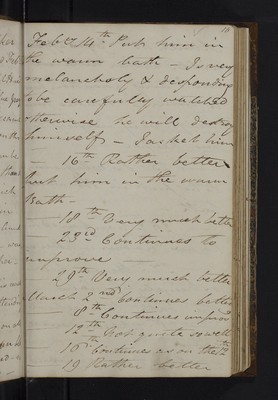 Feby 14th Put him in
the warm bath - Is very
melancholy & desponding
to be carefully watched
otherwise he will destroy
himself -
- 16th Rather better
Put him in the warm
Bath -
- 18th Very much better
- 23rd Continues to
improve -
- 29th Very much better
March 2nd Continues better
- 8th Continues improving
- 12th Not quite so well
- 16th Continues as on the 12th
- 19 Rather better